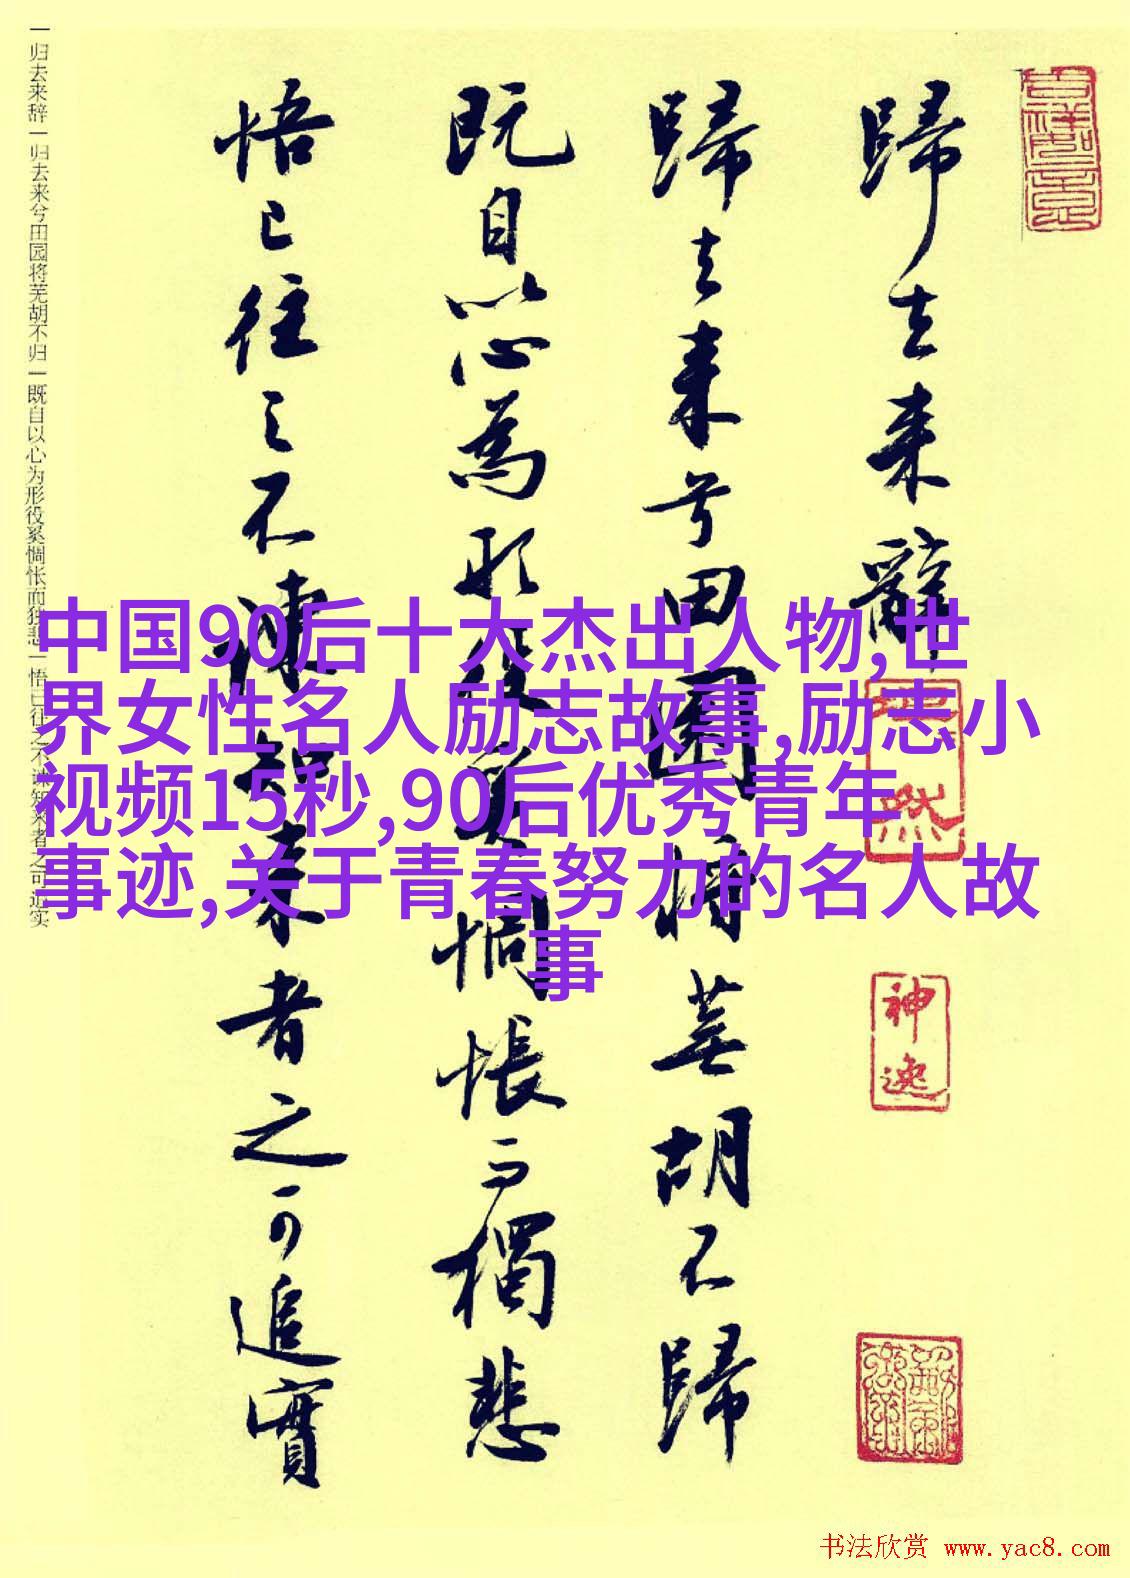 歸去来辭
歸去来兮田園將蕪胡不歸
既自以心為形役奚惆悵而獨悲
悟已往之不諫知来者之可追實
神逸
一归去来辞一归去来兮田园将芜胡不归一既自以心为形役奚惆怅而独悲一悟已往之不谏知来者之可追实
中国90后十大杰出人物,世
界女性名人励志故事,励志小
视频15秒,90后优秀青年
事迹,关于青春努力的名人故
事
书法欣赏 www.yac8.com